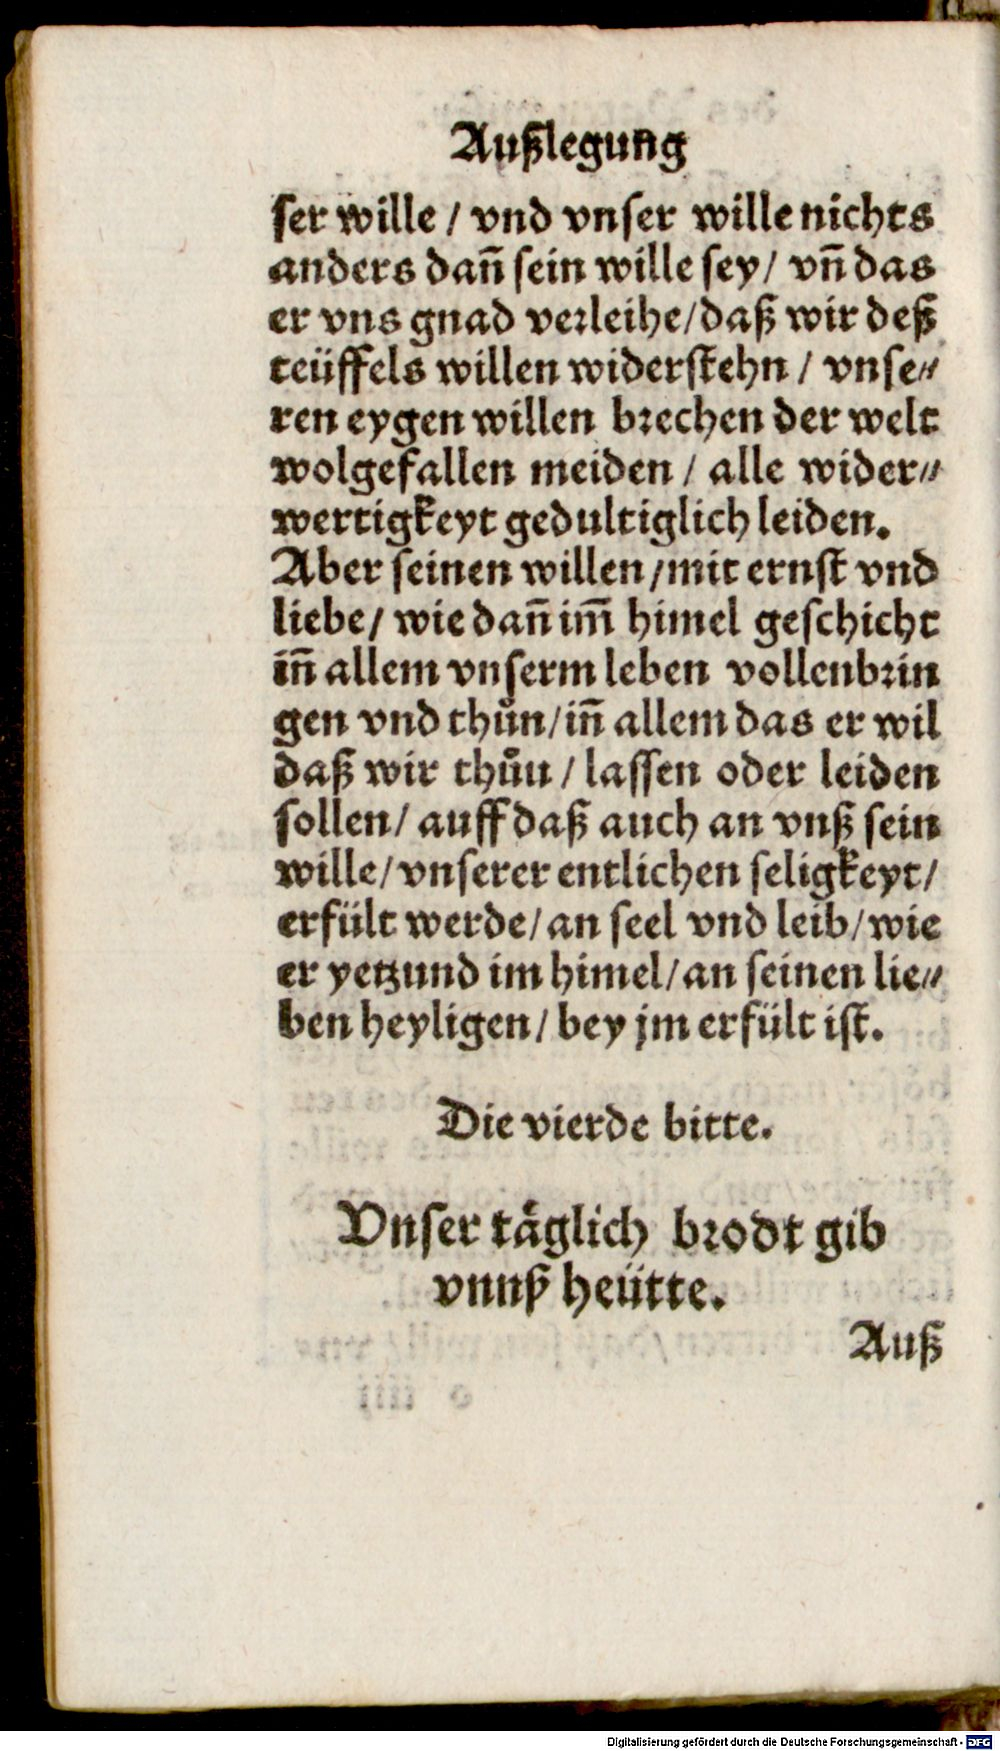 Außlegung
ser wille / vnd vnser wille nichts
anders dañ sein wille sey / vñ das
er vns gnad verleihe / daß wir deß
teüffels willen widerstehn / vnse⸗
ren eygen willen brechen der welt
wolgefallen meiden / alle wider⸗
wertigkeyt gedultiglich leiden.
Aber seinen willen / mit ernst vnd
liebe / wie dañ im̃ himel geschicht
iñ allem vnserm leben vollenbrin
gen vnd thůn / iñ allem das er wil
daß wir thůn / lassen oder leiden
sollen / auff daß auch an vnß sein
wille / vnserer entlichen seligkeyt /
erfült werde / an seel vnd leib / wie
er yetzund im himel / an seinen lie⸗
ben heyligen / bey jm erfült ist.
Die vierde bitte.
Vnser täglich brodt gib
vnnß heütte.
Auß
Digitalisierung gefördert durch die Deutsche Forschungsgemeinschaft - DFG